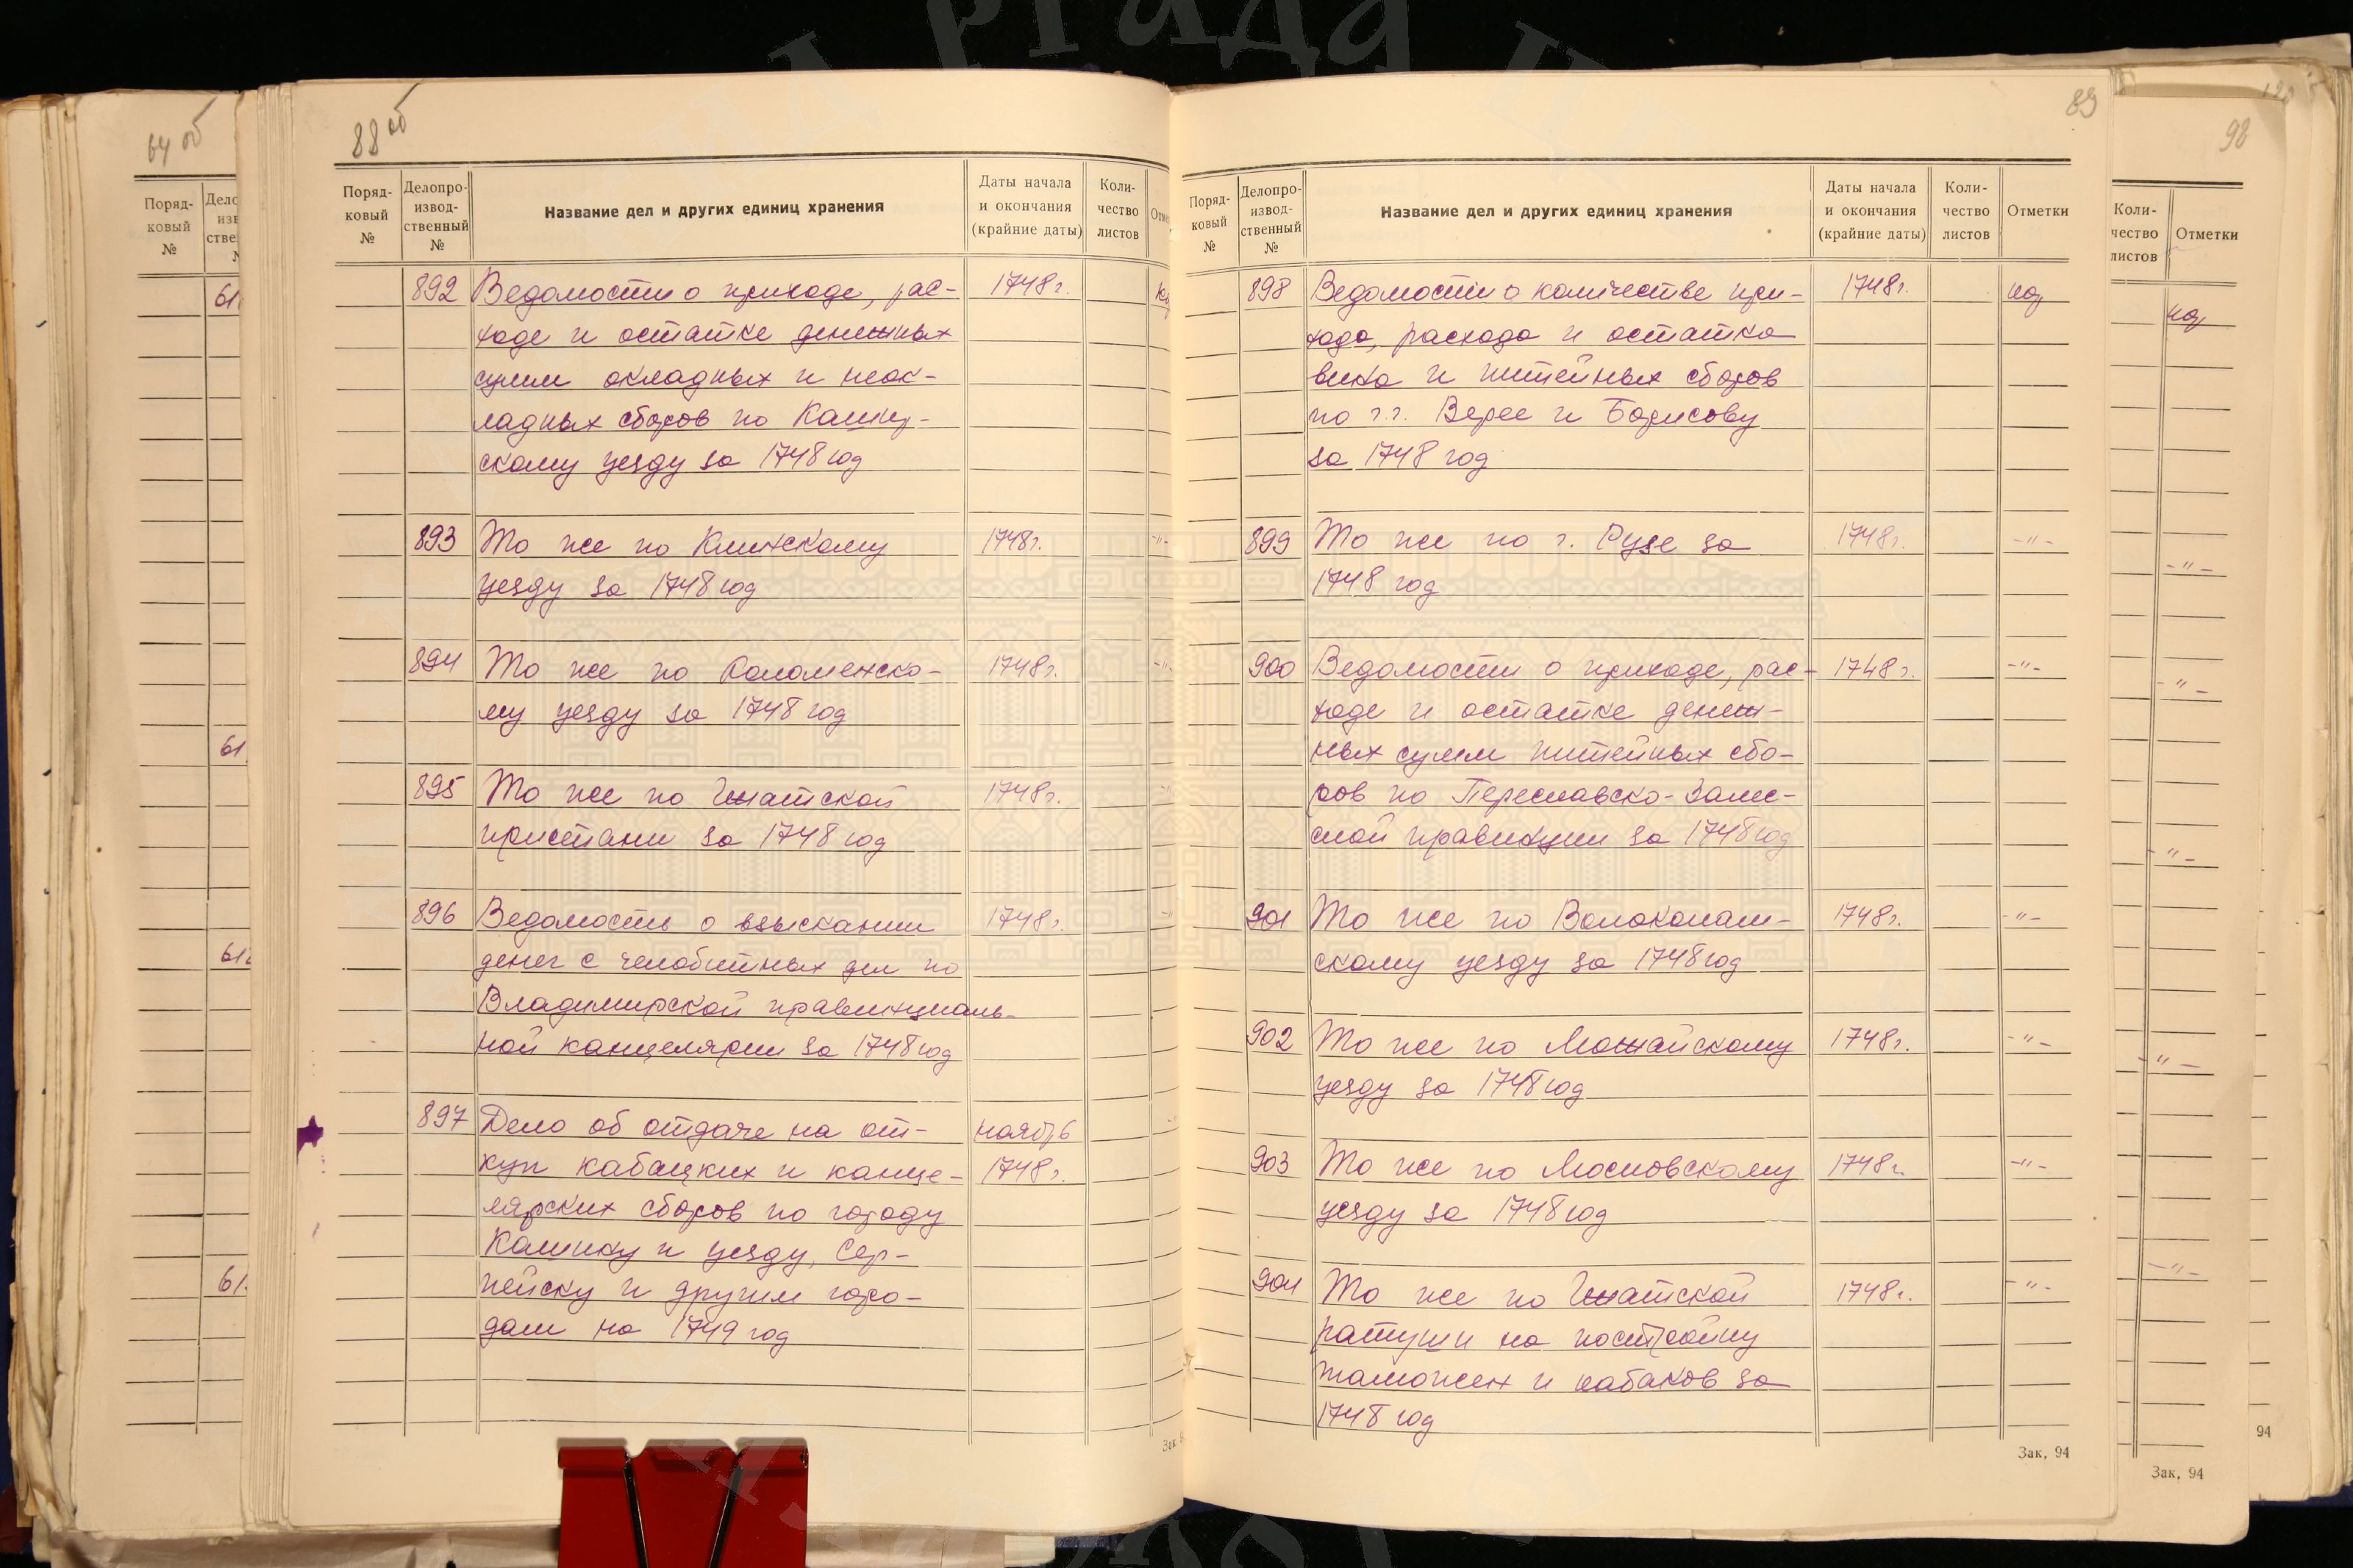 64 об
Поряд-
ковый
№
61
61
61
61
88 об
Поряд-
ковый
№
Делопро-
извод-
ственный
№
Название дел и других единиц хранения
Даты начала
и окончания
(крайние даты)
Коли-
чество
листов
892 Ведомости о приходе, рас- 1748 г.
ходе и остатке денежных
сумм окладных и неок-
ладных сборов по Кашир-
скому уезду за 1748 год
893 То же по Клинскому 1748 г. -"-
уезду за 1748 год
894 То же по Коломенско- 1748 г. -"-
му уезду за 1748 год
895 То же по Гжатской 1748 г.
пристани за 1748 год
896 Ведомость о взыскании 1748 г.
денег с челобитных дел по
Владимирской провинциаль-
ной канцелярии за 1748 год
897 Дело об отдаче на от- ноябрь
куп кабацких и канце- 1748 г.
лярских сборов по городу
Кашину и уезду, Сер-
пейску и другим горо-
дам на 1749 год
Зак.
89
Поряд-
ковый
№
Делопро-
извод-
ственный
№
Название дел и других единиц хранения
Даты начала
и окончания
(крайние даты)
Коли-
чество
листов
Отметки
898 Ведомости о количестве при- 1748 г.
хода, расхода и остатка
вина и питейных сборов
по г.г. Верее и Борисову
за 1748 год
899 То же по г. Рузе за 1748 г. -"-
1748 год
900 Ведомости о приходе, рас- 1748 г. -"-
ходе и остатке денеж-
ных сумм питейных сбо-
ров по Переславско-Залес-
ской провинции за 1748 год
901 То же по Волоколам- 1748 г. -"-
скому уезду за 1748 год
902 То же по Можайскому 1748 г. -"-
уезду за 1748 год
903 То же по Московскому 1748 г. -"-
уезду за 1748 год
904 То же по Гжатской 1748 г. -"-
ратуши на постройку
таможен и кабаков за
1748 год
Зак. 94
98
Коли-
чество
листов
Отметки
-"-
-"-
-"-
-"-
-"-
Зак. 94
94